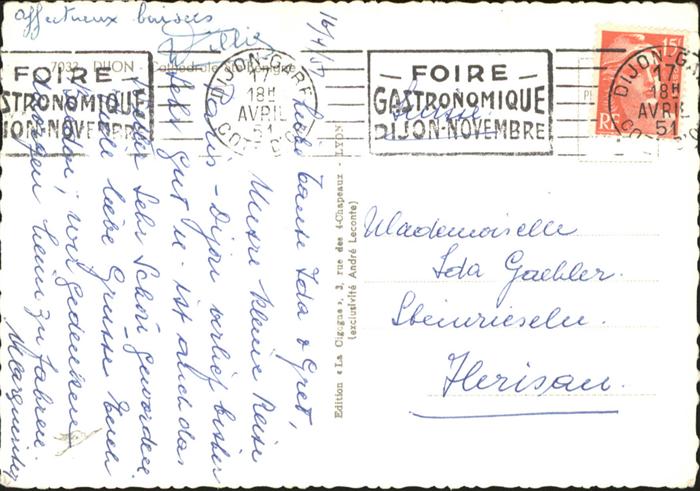 affectueux baisers
7033 - DIJON - Cathédrale
FOIRE
GASTRONOMIQUE
DIJON-NOVEMBRE
DIJON-GARE
18H
AVRIL
51
CÔTE D'OR
FOIRE
GASTRONOMIQUE
DIJON-NOVEMBRE
DIJON-GARE
17
18H
AVRIL
51
15F
RF
Suisse
16/4/51
Liebe Tante Ida & Gret,
Unsere kleine Reise
Paris - Dijon verlief bisher
sehr gut u. ist auch das
Wetter sehr schön geworden.
Viele liebe Grüsse Euch
beiden, wir gedenken
morgen heim zu fahren.
Marguerite
Edition « La Cigogne », 3, rue des 4-Chapeaux - LYON
(exclusivité André Leconte)
Mademoiselle
Ida Gaehler.
Steinrieseln.
Herisau.